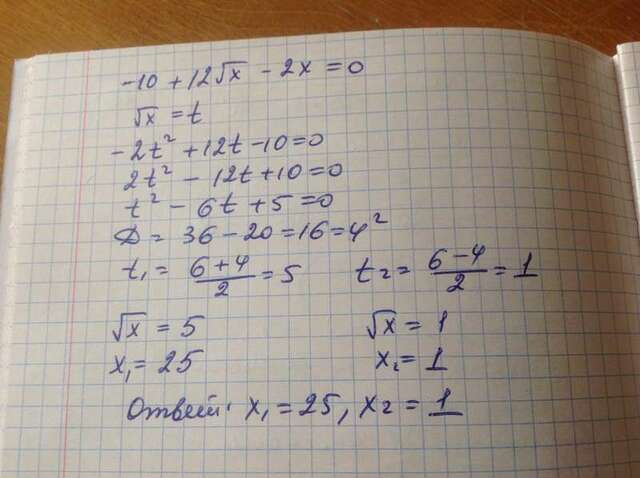 -10 + 12√x - 2x = 0
√x = t
-2t² + 12t - 10 = 0
2t² - 12t + 10 = 0
t² - 6t + 5 = 0
D = 36 - 20 = 16 = 4²
t₁ = (6 + 4)/2 = 5 t₂ = (6 - 4)/2 = 1
√x = 5 √x = 1
x₁ = 25 x₂ = 1
Ответ: x₁ = 25, x₂ = 1